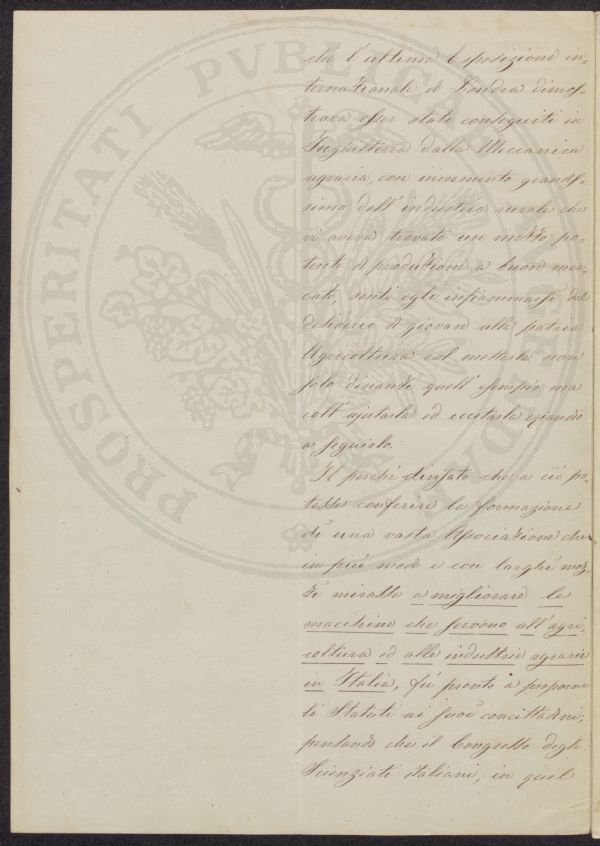 che l'ultima Esposizione in=
ternazionale di Londra dimos=
trava esser stati conseguiti in
Inghilterra dalla Meccanica
agraria, con incremento grandis=
simo dell'industria rurale che
vi aveva trovato un mezzo po=
tente di produzione a buon mer=
cato, sentì egli infiammarsi dal
desiderio di giovare alla patria
Agricoltura col metterle non
solo dinanzi quell'esempio ma
coll'ajutarla ed eccitarla eziandio
a seguirlo.
Il perchè divisato che a ciò po=
tesse conferire la formazione
di una vasta Associazione che
in più modi e con larghi mez=
zi mirasse a migliorare le
macchine che servono all'agri=
coltura ed alle industrie agrarie
in Italia, fù pronto a proporne
li Statuti ai suoi concittadini;
pensando che il Congresso degli
Scienziati italiani, in quel
PROSPERITATI PVBLICAE